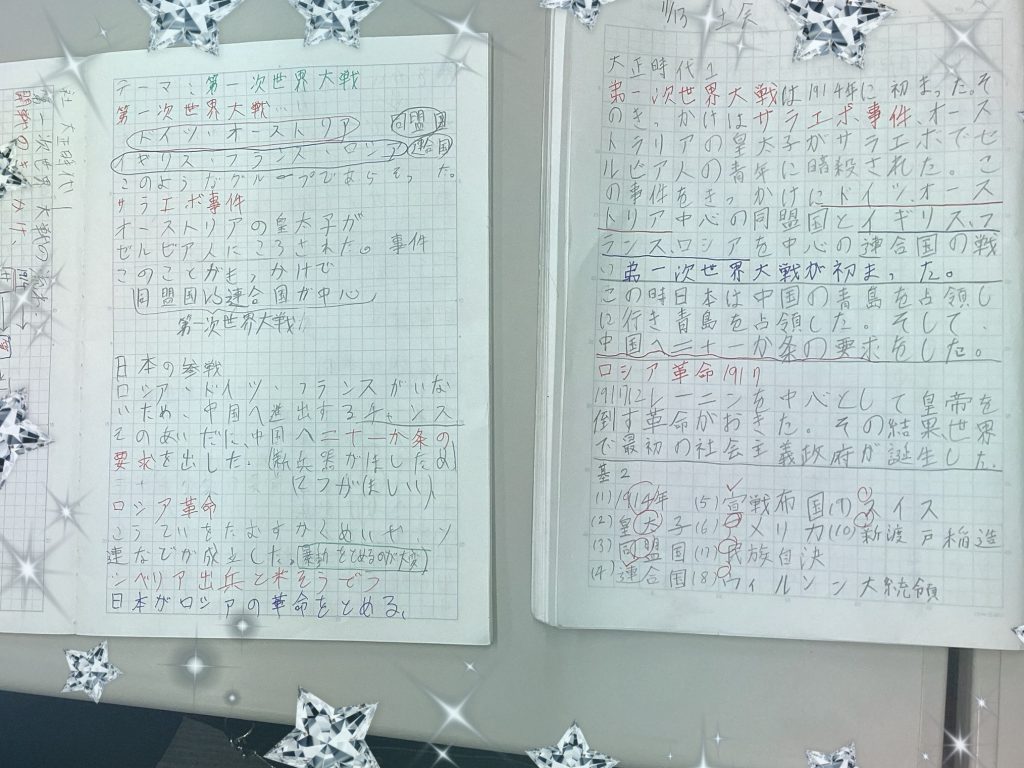 テーマ:第一次世界大戦
第一次世界大戦
ドイツ・オーストリア 同盟国
イギリス・フランス・ロシア 連合国
このようなグループであらそった。
サラエボ事件
オーストリアの皇太子が
セルビア人にころされた。事件
このことがきっかけで
同盟国VS連合国が中心
第一次世界大戦!
日本の参戦
ロシア・ドイツ・フランスがいな
いため、中国へ進出するチャンス
そのあいだに、中国へ二十一か条の
要求を出した。
ロシア革命
連などが成立した。
シベリア出兵と米そうどう
日本がロシアの革命をとめる、
11/13
大正時代1
第一次世界大戦は1914年に初まった。そ
のきっかけはサラエボ事件、オース
トラリアの皇太子がサラエボでセ
ルビア人の青年に暗殺された。こ
の事件をきっかけにドイツ、オース
トリア中心の同盟国とイギリス、フ
ランス、ロシアを中心の連合国の戦
い第一次世界大戦が初まった。
この時日本は中国の青島を占領し
に行き青島を占領した。そして、
中国へ二十一か条の要求をした。
ロシア革命1917
1917にレーニンを中心として皇帝を
倒す革命がおきた。その結果、世界
で最初の社会主義政府が誕生した。
基2
(1)1914年 (5)宣戦布国 スイス
(2)皇太子 (6)アメリカ (10)新渡戸稲造
(3)同盟国 (7)民族自決
(4)連合国 (8)ウィルソン大統領